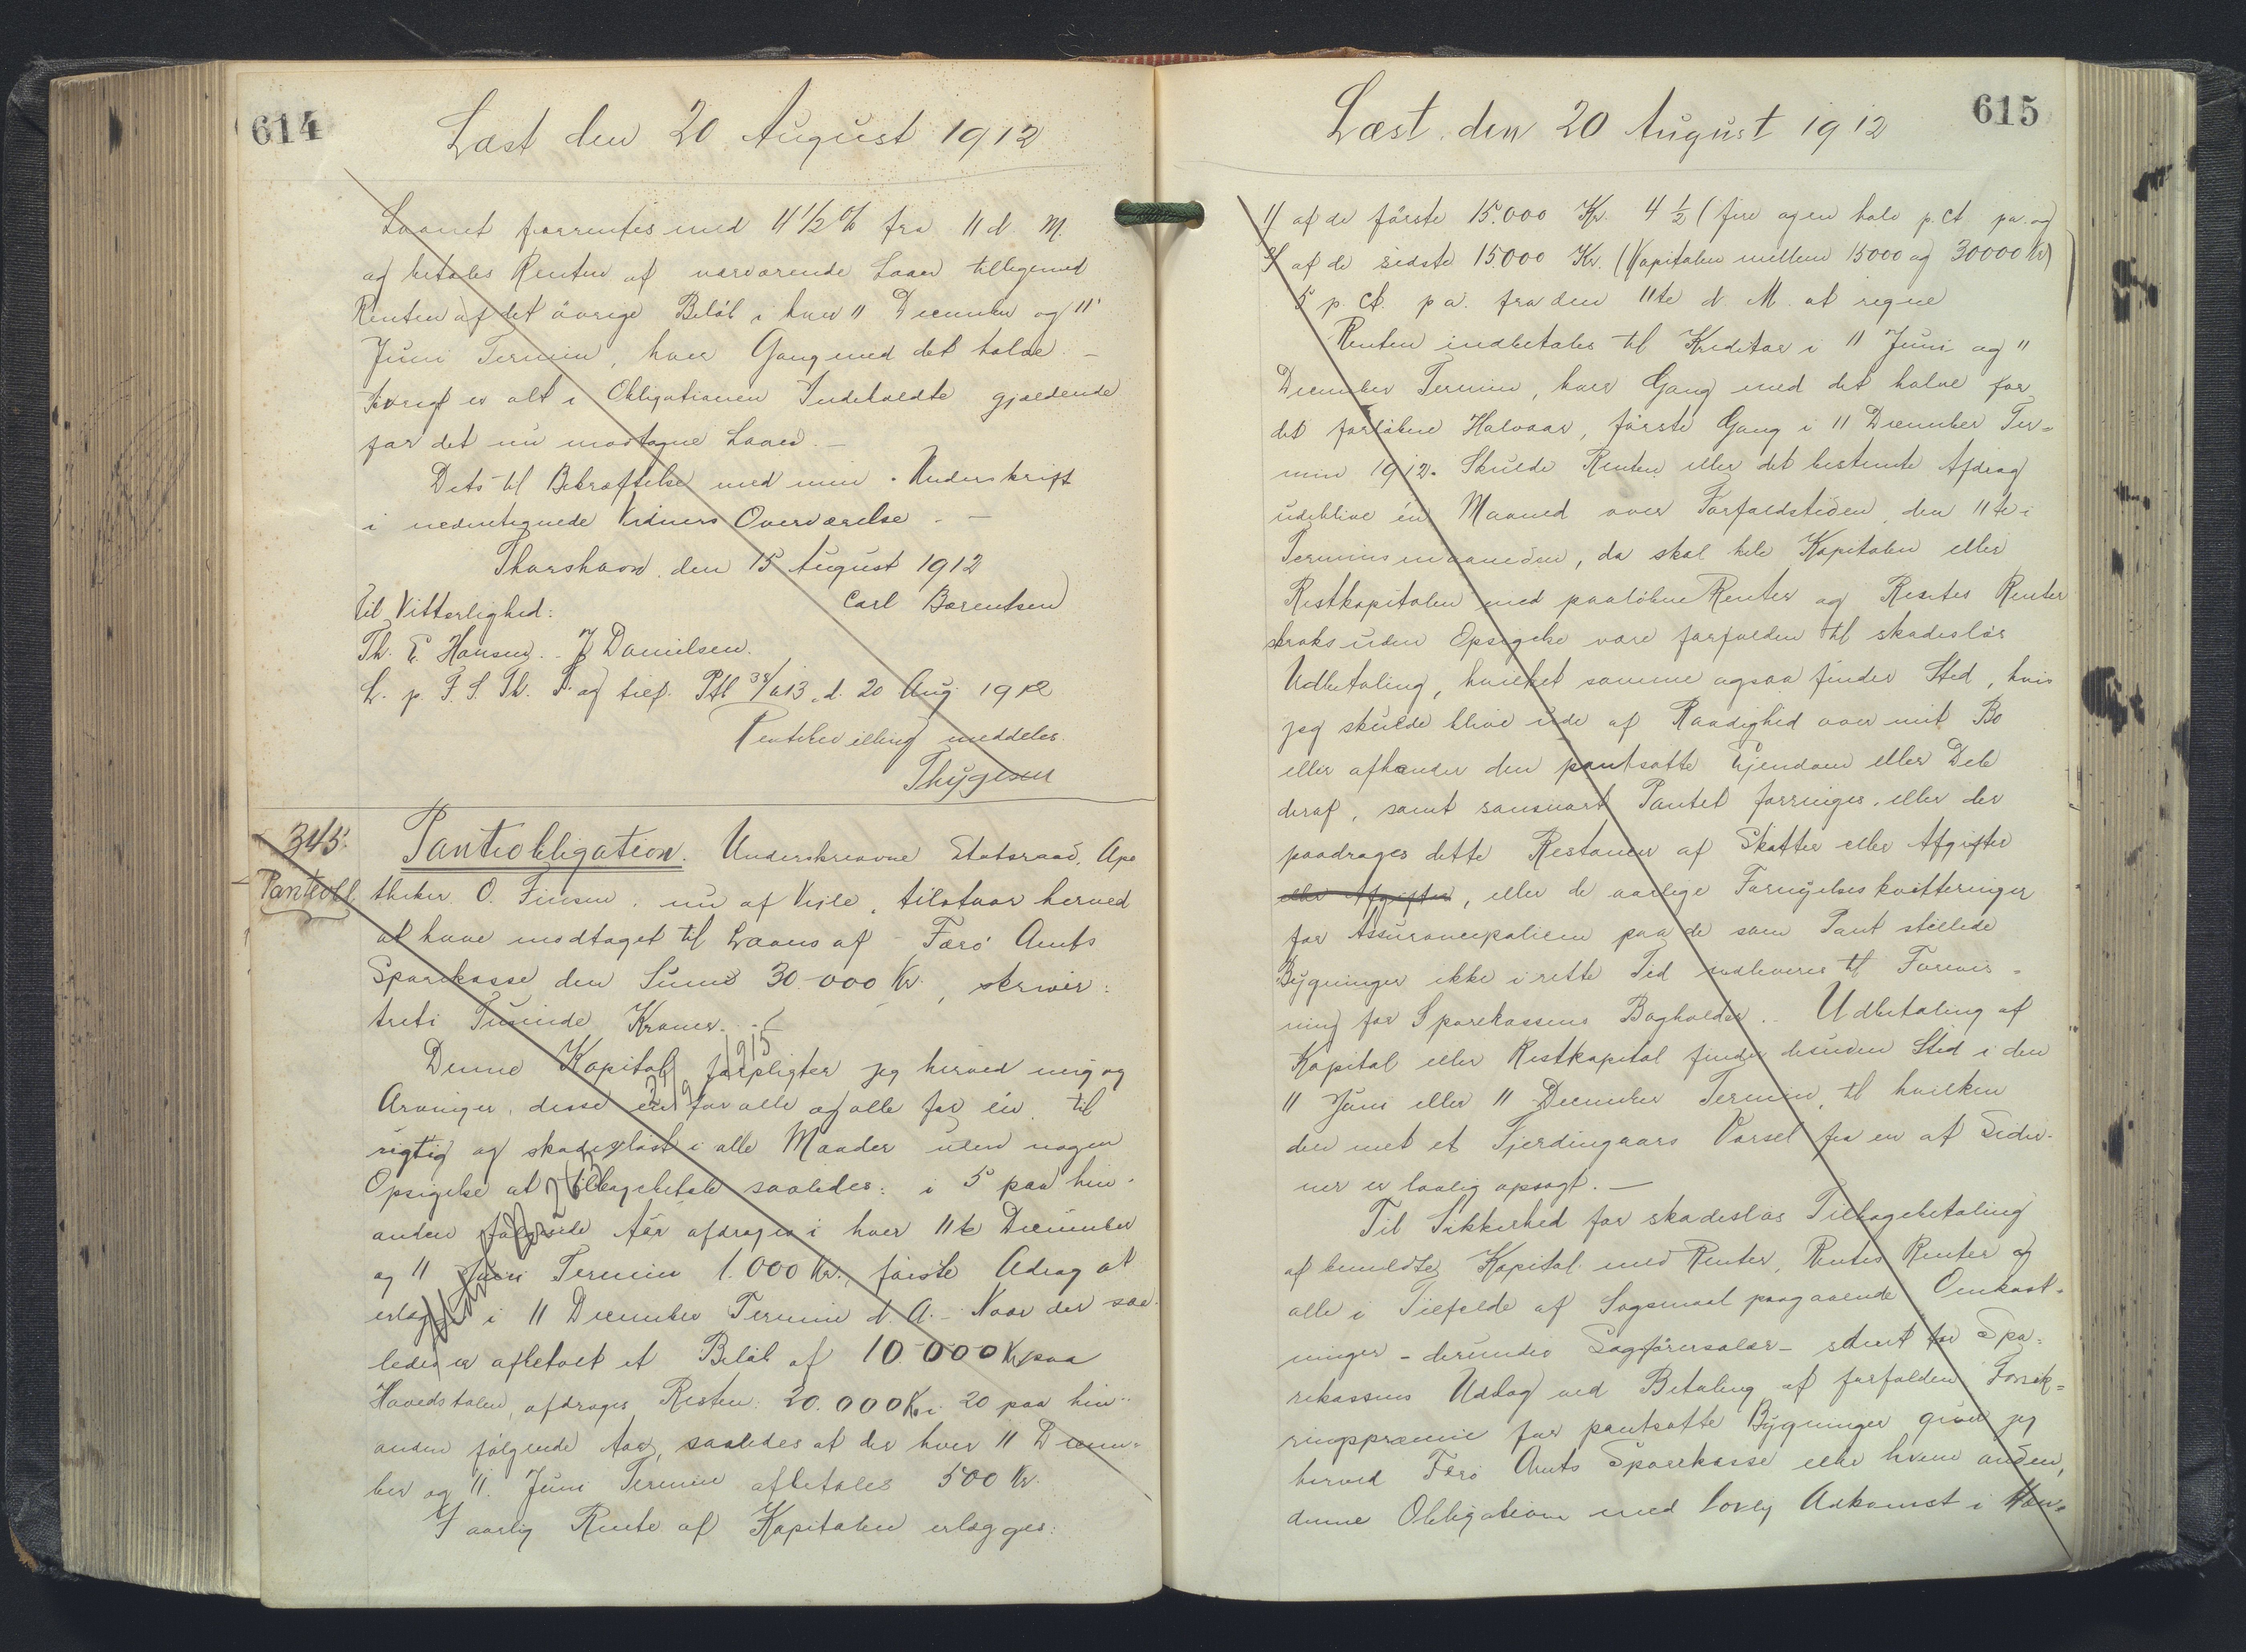 614
Læst den 20 August 1912
Laanet forrentes med 4 1/2 % fra 11 d. M.
og betales Renten af nærværende Laan tilligemed
Renten af det øvrige Beløb i hver 11 December og 11'
Juni Termin, hver Gang med det halve. –
Iøvrigt er alt i Obligationen Indeholdte gjældende
for det nu modtagne Laan. –
Dets til Bekræftelse med min Underskrift
i nedentegnede Vidners Overværelse. –
Thorshavn, den 15 August 1912
Carl Børentsen
Til Vitterlighed:
Th. E. Hansen. J Danielsen.
L. p. F. S. Th. T. og tilf. Ptl 38/613 d. 20 Aug. 1912
meddeles.
Thygesen
345.
Pantobl.
Pantobligation. Underskrevne Etatsraad, Apo
theker O. Finsen, nu af Vejle, tilstaar herved
at have modtaget til Laans af Færø Amts
Sparekasse den Sum 30.000 Kr., skriver:
treti Tusinde Kroner. –
Denne Kapital forpligter jeg herved mig og
Arvinger, disse en for alle og alle for én, til
rigtig og skadesløst i alle Maader uden nogen
Opsigelse at tilbagebetale saaledes: i 5 paa hin-
anden følgende Aar afdrages i hver 11te December
og 11 Juni Termin 1.000 Kr., første Adrag at
erlægge i 11 December Termin d. A. – Naar der saa-
ledes er afbetalt et Beløb af 10.000 Kr paa
Hovedstolen, afdrages Resten: 20.000 Kr i 20 paa hin-
anden følgende Aar, saaledes at der hver 11 Decem-
ber og 11. Juni Termin afbetales 500 Kr.
I aarlig Rente af Kapitalen erlægges:
1915
615
Læst den 20 August 1912
1/ af de første 15.000 Kr. 4 1/2 (fire og en halv p. ct. pa. og
2/ af de sidste 15.000 Kr. (Kapitalen mellem 15000 og 30000 Kr)
5 p. ct. p a. fra den 11te d. M. at regne
Renten indbetales til Kreditor i 11 Juni og 11
December Termin, hver Gang med det halve for
det forløbne Halvaar, første Gang i 11 December Ter-
min 1912. Skulde Renten eller det bestemte Afdrag
udeblive én Maaned over Forfaldstiden, den 11te i
Terminsmaaneden, da skal hele Kapitalen eller
Restkapitalen med paaløbne Renter og Rentes Renter
straks uden Opsigelse være forfalden til skadesløs
Udbetaling, hvilket samme ogsaa finder Sted, hvis
jeg skulde blive ude af Raadighed over mit Bo
eller afhænder den pantsatte Ejendom eller Dele
deraf, samt saasnart Pantet forringes, eller der
paadrages dette Restancer af Skatter eller Afgifter
eller Afgifter, eller de aarlige Fornyelseskvitteringer
for Assurancepolicen paa de som Pant stillede
Bygninger ikke i rette Tid indleveres til Forevis-
ning for Sparekassens Bogholder. – Udbetaling af
Kapital eller Restkapital finder desuden Sted i den
11 Juni eller 11 December Termin, til hvilken
den met et Fjerdingaars Varsel fra en af Sider-
ner er lovlig opsagt. –
Til Sikkerhed for skadesløs Tilbagebetaling
af bemeldte Kapital med Renter, Rentes Renter og
alle i Tilfælde af Søgsmaal paagaaende Omkost-
ninger – derunder Sagførersalær – samt for Spa-
rekassens Udlæg ved Betaling af forfalden Forsik-
ringspræmie for pantsatte Bygninger giver jeg
herved Færø Amts Sparekasse eller hvem anden,
denne Obligation med lovlig Adkomst i Hæn-